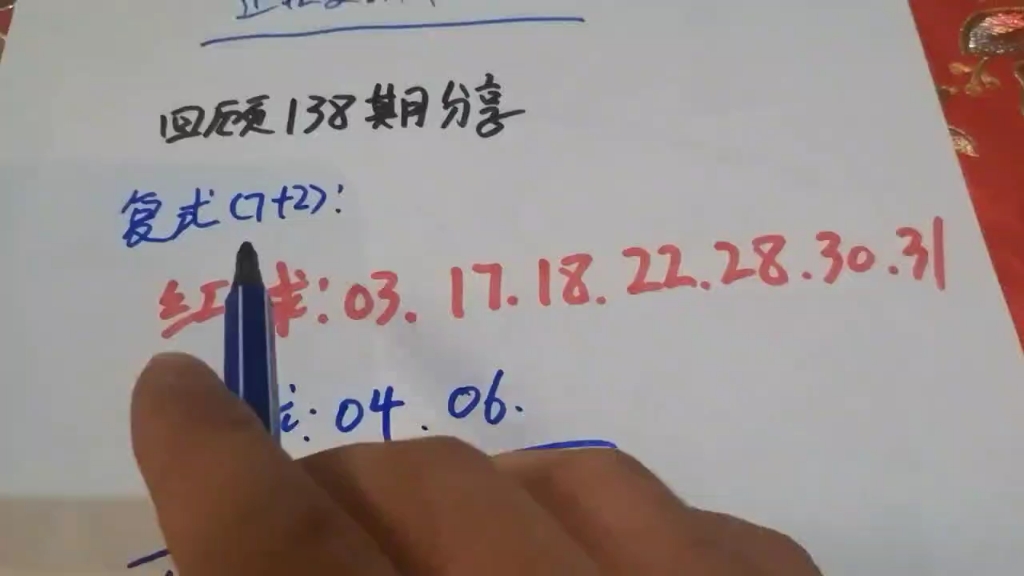 回顾138期分享
复式(7+2):
红球:03.17.18.22.28.30.31
:04.06.